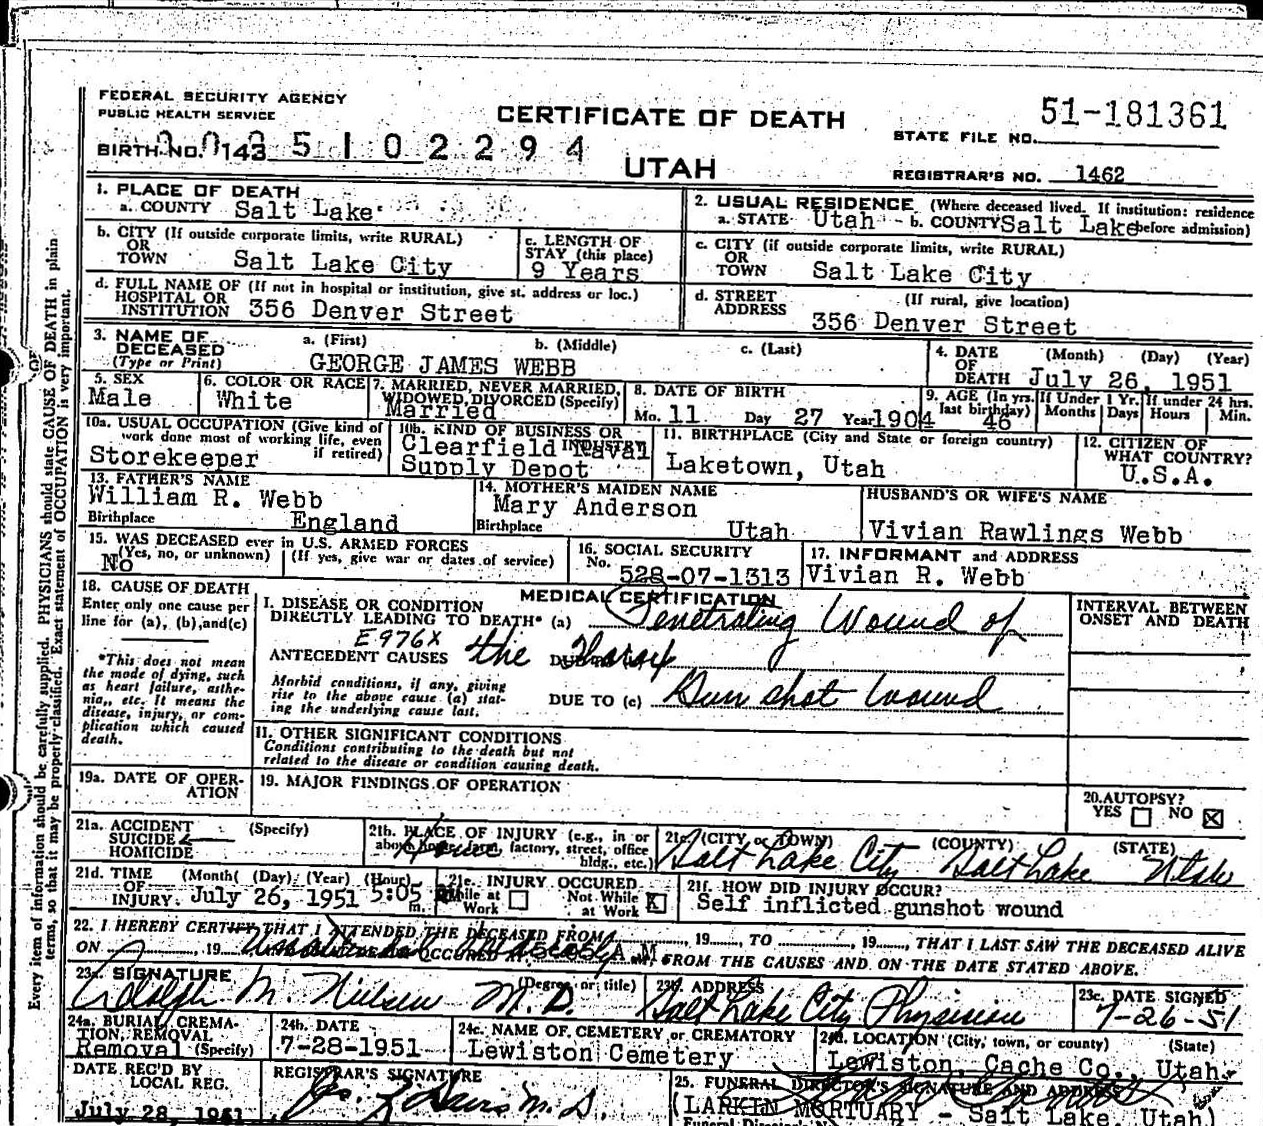 FEDERAL SECURITY AGENCY
PUBLIC HEALTH SERVICE
CERTIFICATE OF DEATH
51-181361
STATE FILE NO.
BIRTH NO. 143 5 1 0 2 2 9 4
UTAH
REGISTRAR'S NO. 1462
1. PLACE OF DEATH
a. COUNTY Salt Lake
2. USUAL RESIDENCE (Where deceased lived. If institution: residence before admission)
a. STATE Utah b. COUNTY Salt Lake
b. CITY (If outside corporate limits, write RURAL)
OR
TOWN Salt Lake City
c. LENGTH OF
STAY (this place)
9 Years
c. CITY (if outside corporate limits, write RURAL)
OR
TOWN Salt Lake City
d. FULL NAME OF (If not in hospital or institution, give st. address or loc.)
HOSPITAL OR
INSTITUTION 356 Denver Street
d. STREET (If rural, give location)
ADDRESS
356 Denver Street
3. NAME OF a. (First) b. (Middle) c. (Last)
DECEASED
(Type or Print) GEORGE JAMES WEBB
4. DATE (Month) (Day) (Year)
OF
DEATH July 26, 1951
5. SEX
Male
6. COLOR OR RACE
White
7. MARRIED, NEVER MARRIED,
WIDOWED, DIVORCED (Specify)
Married
8. DATE OF BIRTH
Mo. 11 Day 27 Year 1904
9. AGE (In yrs. last birthday) 46
If Under 1 Yr. Months Days
If under 24 hrs. Hours Min.
10a. USUAL OCCUPATION (Give kind of
work done most of working life, even
if retired)
Storekeeper
10b. KIND OF BUSINESS OR
INDUSTRY
Clearfield Naval
Supply Depot
11. BIRTHPLACE (City and State or foreign country)
Laketown, Utah
12. CITIZEN OF
WHAT COUNTRY?
U.S.A.
13. FATHER'S NAME
William R. Webb
Birthplace England
14. MOTHER'S MAIDEN NAME
Mary Anderson
Birthplace Utah
HUSBAND'S OR WIFE'S NAME
Vivian Rawlings Webb
15. WAS DECEASED ever in U.S. ARMED FORCES
(Yes, no, or unknown) (If yes, give war or dates of service)
No
16. SOCIAL SECURITY
No. 528-07-1313
17. INFORMANT and ADDRESS
Vivian R. Webb
18. CAUSE OF DEATH
Enter only one cause per
line for (a), (b), and (c)
*This does not mean
the mode of dying, such
as heart failure, asthe-
nia, etc. It means the
disease, injury, or com-
plication which caused
death.
MEDICAL CERTIFICATION
I. DISEASE OR CONDITION
DIRECTLY LEADING TO DEATH* (a) Penetrating Wound of
E976X
ANTECEDENT CAUSES the DUE TO Thorax
Morbid conditions, if any, giving
rise to the above cause (a) stat-
ing the underlying cause last.
DUE TO (c) Gun shot wound
INTERVAL BETWEEN
ONSET AND DEATH
11. OTHER SIGNIFICANT CONDITIONS
Conditions contributing to the death but not
related to the disease or condition causing death.
19a. DATE OF OPER-
ATION
19. MAJOR FINDINGS OF OPERATION
20. AUTOPSY?
YES NO X
21a. ACCIDENT (Specify)
SUICIDE
HOMICIDE
21b. PLACE OF INJURY (e.g., in or
about home, farm, factory, street, office
bldg., etc.)
Home
21c. (CITY or TOWN) (COUNTY) (STATE)
Salt Lake City Salt Lake Utah
21d. TIME (Month) (Day) (Year) (Hour)
OF
INJURY. July 26, 1951 5:05 m.
21e. INJURY OCCURED
While at Work Not While at Work X
21f. HOW DID INJURY OCCUR?
Self inflicted gunshot wound
22. I HEREBY CERTIFY THAT I ATTENDED THE DECEASED FROM , 19 , TO , 19 , THAT I LAST SAW THE DECEASED ALIVE
ON , 19 OCCURED A.M. FROM THE CAUSES AND ON THE DATE STATED ABOVE.
23a. SIGNATURE (Degree or title)
Adolph M. Nielsen M.D.
23b. ADDRESS
Salt Lake City Physician
23c. DATE SIGNED
7-26-51
24a. BURIAL, CREMA-
TION, REMOVAL
Removal (Specify)
24b. DATE
7-28-1951
24c. NAME OF CEMETERY or CREMATORY
Lewiston Cemetery
24d. LOCATION (City, town, or county) (State)
Lewiston, Cache Co., Utah
DATE REC'D BY
LOCAL REG.
July 28, 1951
REGISTRAR'S SIGNATURE
M.D.
25. FUNERAL DIRECTOR'S SIGNATURE AND ADDRESS
(LARKIN MORTUARY - Salt Lake, Utah)
Every item of information should be carefully supplied. PHYSICIANS should state CAUSE OF DEATH in plain
terms, so that it may be properly classified. Exact statement of OCCUPATION is very important.